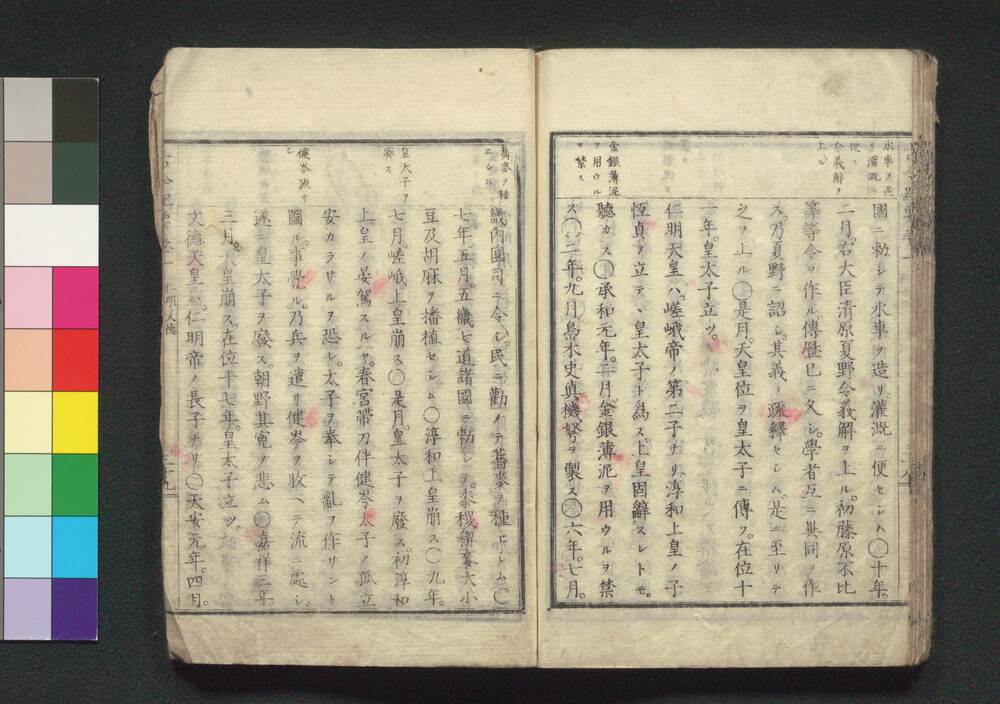 水車ヲ造
リ灌漑ニ
便ス
令義解ヲ
上ル
國ニ勅シテ水車ヲ造リ灌漑ニ便セシム〇十年。
二月。右大臣清原夏野令義解ヲ上ル。初藤原不比
等等令ヲ作ル。傳歴已ニ久シ。學者互ニ異同ヲ作
ス。乃夏野ニ詔シ。其義ヲ疏釋セシム。是ニ至リテ
之ヲ上ル〇是月。天皇位ヲ皇太子ニ傳フ。在位十
一年。皇太子立ツ。
仁明天皇ハ。嵯峨帝ノ第二子ナリ。淳和上皇ノ子
恆貞ヲ立テヽ皇太子ト爲ス。上皇固辭スレトモ。
金銀薄泥
ヲ用ウル
ヲ禁ス
聽カス〇承和元年。二月。金銀薄泥ヲ用ウルヲ禁
ス〇二年。九月。島木史真機弩ヲ製ス〇六年。七月。
蕎麥ヲ種
ヱシム
畿內國司ニ令シ。民ニ勸メテ蕎麥ヲ種ヱシム〇
七年。五月。五畿七道諸國ニ勅シテ。黍稷稗麥大小
豆及胡麻ヲ播植セシム〇淳和上皇崩ス〇九年。
皇太子ヲ
廢ス
七月。嵯峨上皇崩ス〇是月。皇太子ヲ廢ス。初淳和
上皇ノ晏駕スルヤ。春宮帶刀伴健岑太子ノ孤立
安カラサルヲ恐レ。太子ヲ奉シテ亂ヲ作サント
健岑流サ
圖ル。事覺ル。乃兵ヲ遣リ健岑ヲ收ヘテ流ニ處シ。
遂ニ皇太子ヲ廢ス。朝野其寃ヲ悲ム〇嘉祥三年。
三月。天皇崩ス。在位十七年。皇太子立ツ。
文德天皇ハ。仁明帝ノ長子ナリ〇天安元年。四月。
仁明文德